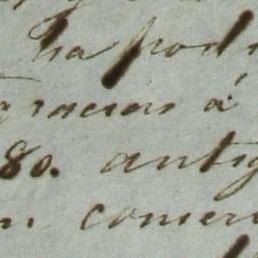 ha pod
gracias á
80. antig
n comer